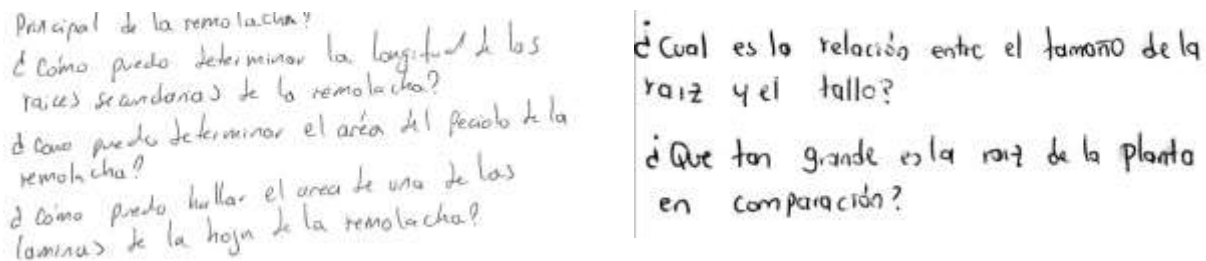 Principal de la remolacha?
¿Cómo puedo determinar la longitud de las
raices secundarias de la remolacha?
¿Como puedo determinar el aréa del peciolo de la
remolacha?
¿Cómo puedo hallar el area de una de las
laminas de la hoja de la remolacha?
¿Cual es la relación entre el tamaño de la
raiz y el tallo?
¿Que tan grande es la raiz de la planta
en comparación?